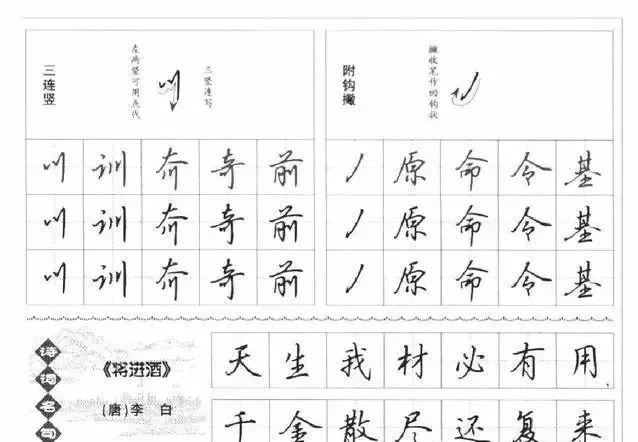 三连竖
左两竖可用点代
川
三竖连写
附钩撇
撇收笔作回钩状
川 训 奇 前 丿 原 命 令 基
川 训 奇 前 丿 原 命 令 基
川 训 奇 前 丿 原 命 令 基
诗词名句
《将进酒》
(唐)李 白
天 生 我 材 必 有 用
千 金 散 尽 还 复 来